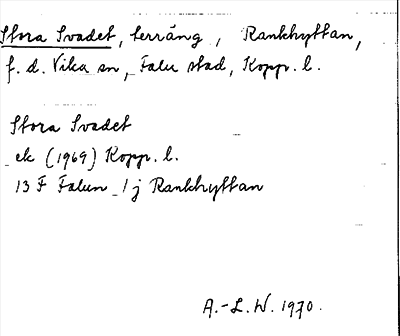 Stora Svadet, terräng, Rankhyttan,
f. d. Vika sn, Falu stad, Kopp. l.
Stora Svadet
ek (1969) Kopp. l.
13 F Falun 1 j Rankhyttan
A.-L. W. 1970.